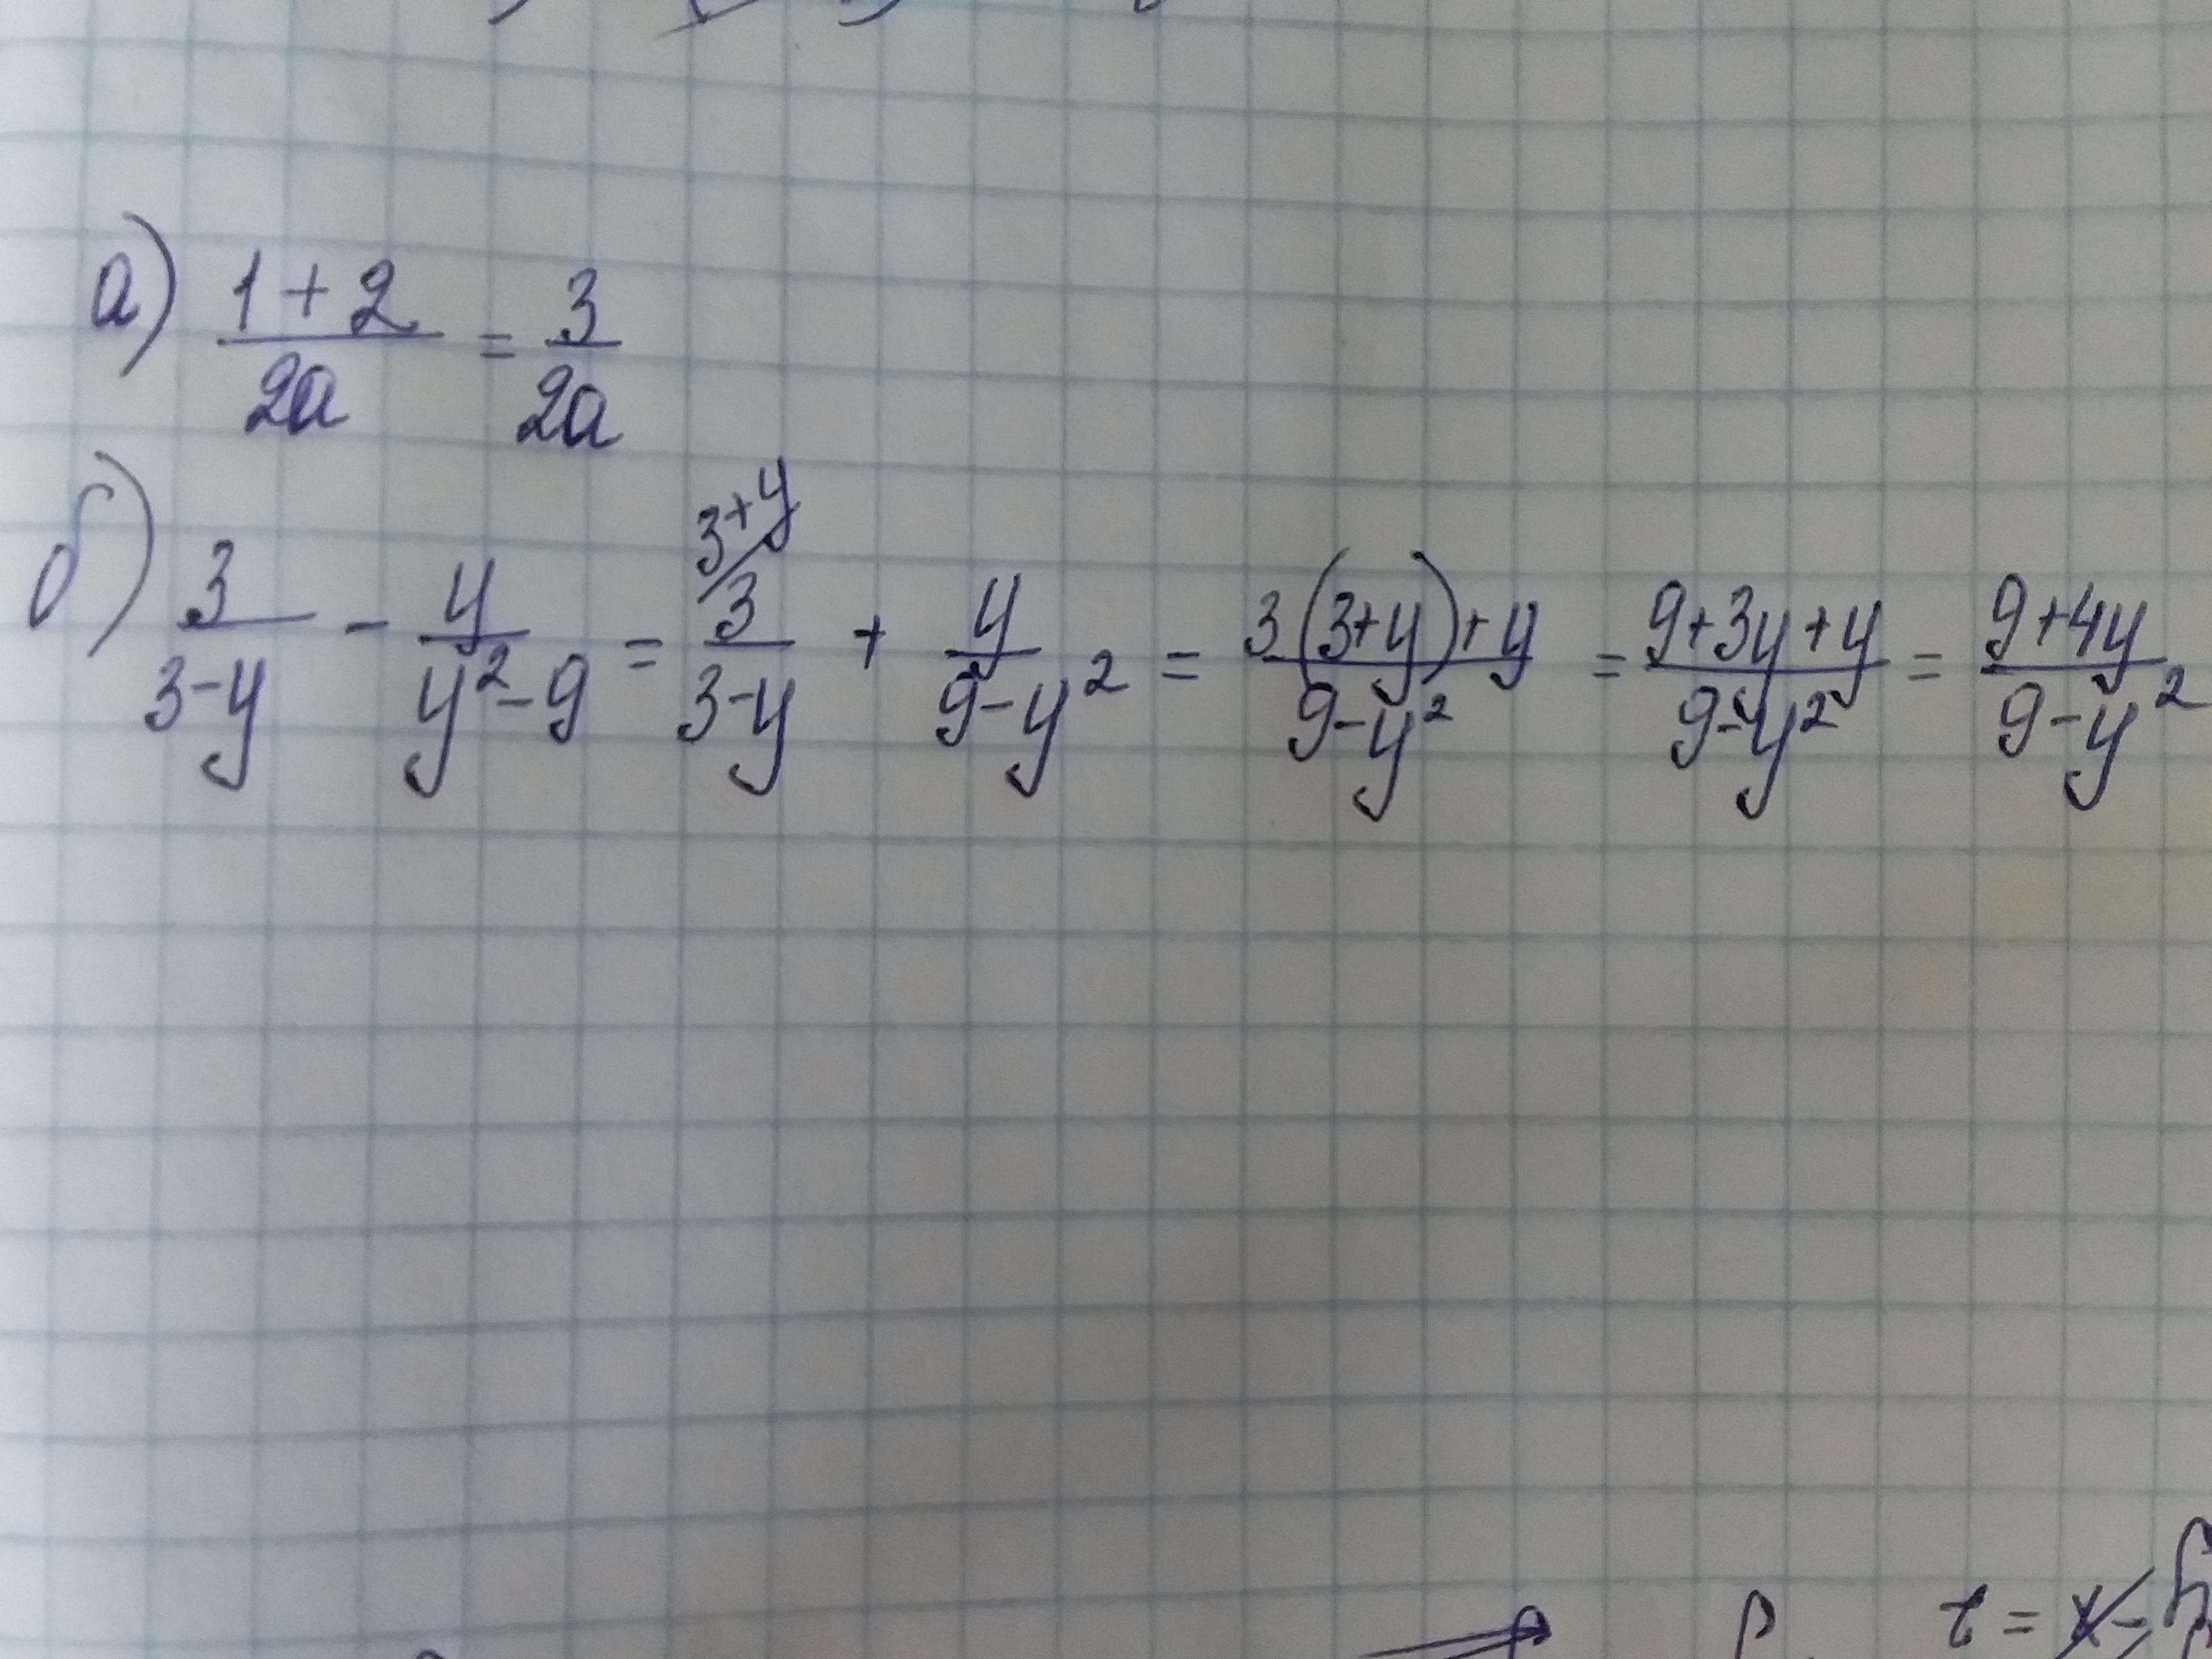 а) (1+2)/(2a) = 3/(2a)
б) 3/(3-y) - y/(y²-9) = 3/(3-y) ⟋3+y + y/(9-y²) = (3(3+y)+y)/(9-y²) = (9+3y+y)/(9-y²) = (9+4y)/(9-y²)